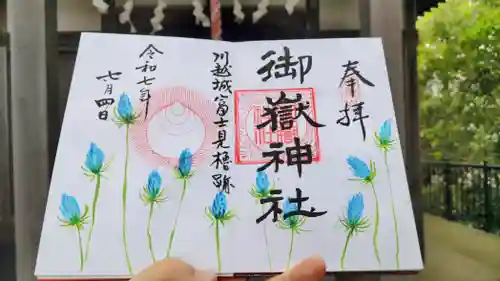 奉拝
御嶽神社
川越城富士見櫓跡
令和七年
七月四日